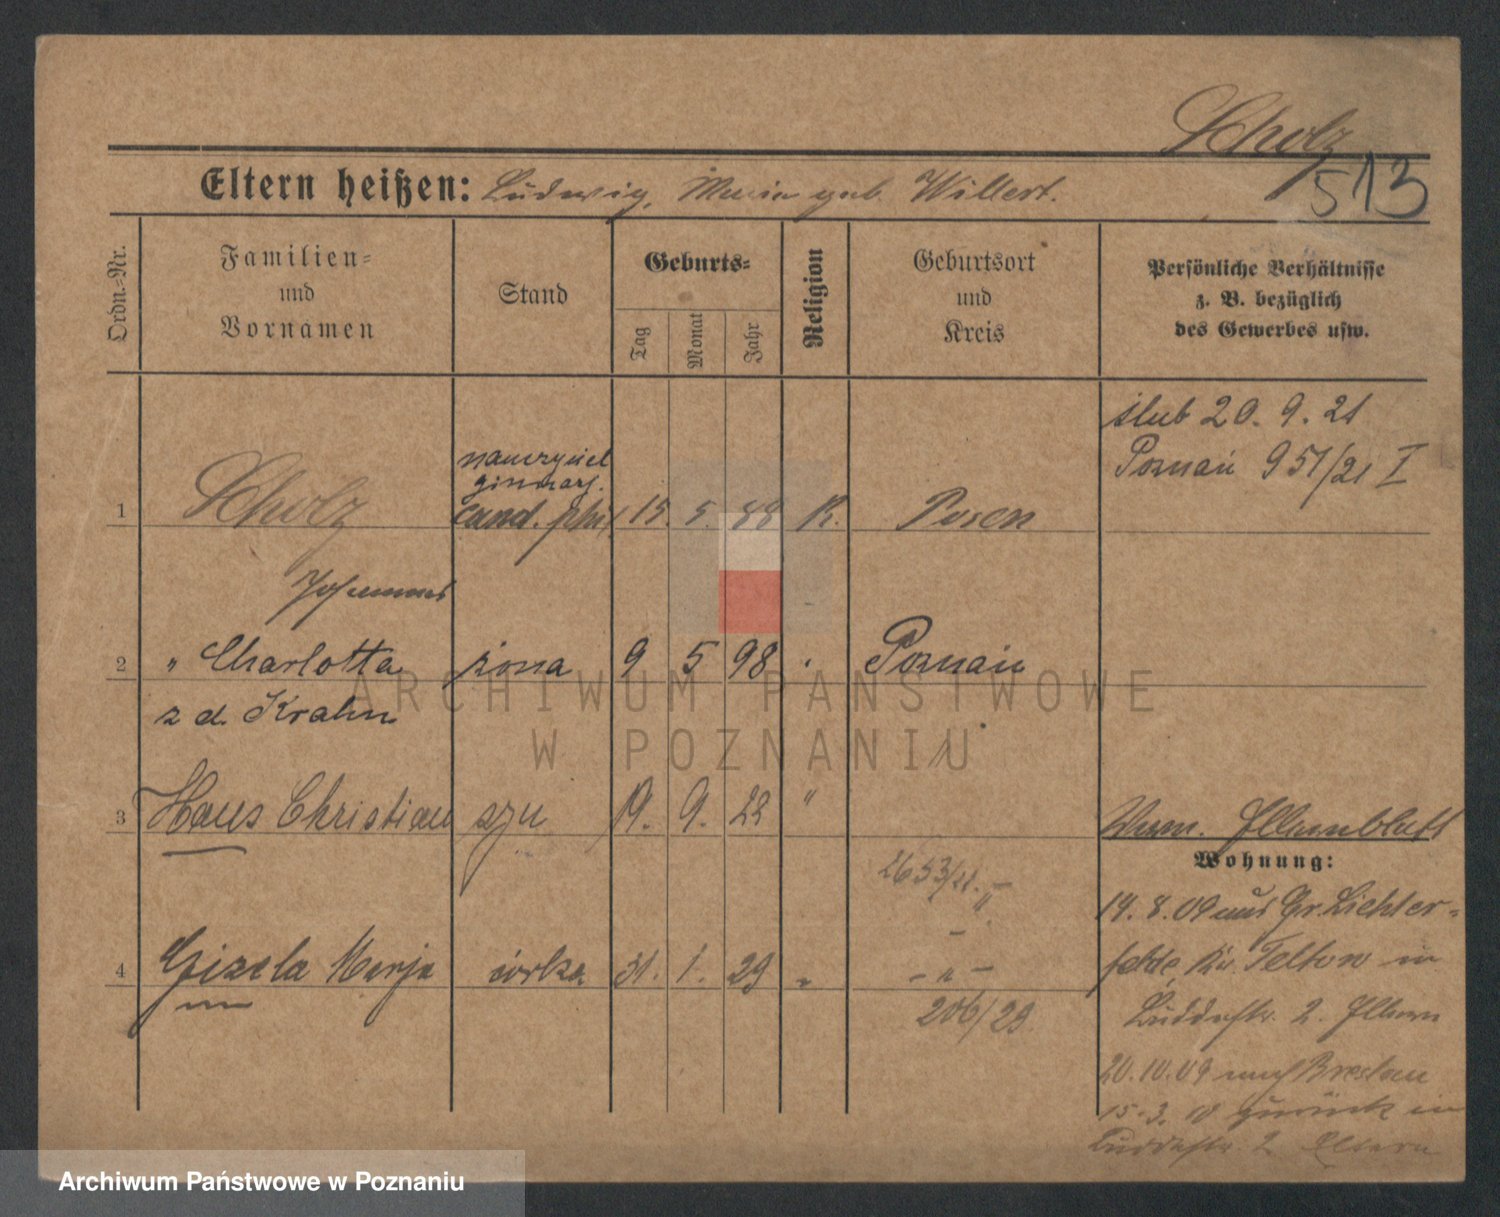 Scholz
513
Eltern heißen: Ludwig, Maria geb. Willert.
Ordn.-Nr.
Familien- und Vornamen
Stand
Geburts-
Tag
Monat
Jahr
Religion
Geburtsort und Kreis
Persönliche Verhältnisse
z. B. bezüglich
des Gewerbes usw.
ślub 20. 9. 21
Poznań 951/21 I
nauczyciel
gimnazj.
1 Scholz cand. phil 15. 5. 88 K. Posen
Johannes
2 " Charlotta żona 9 5 98 " Poznań
z d. Krahn
3 Hans Christian syn 19. 9. 22 "
Verm. Elternblatt
Wohnung:
2653/22. "
14. 8. 09 aus Gr. Lichter-
4 Gizela Marja córka 31. 1. 29 " - " -
felde Kr. Teltow in
206/29
Luddestr. 2. Eltern
20.10.09 nach Breslau
15.3. 10 zurück in
Luddestr. 2 Eltern
ARCHIWUM PAŃSTWOWE
W POZNANIU
Archiwum Państwowe w Poznaniu